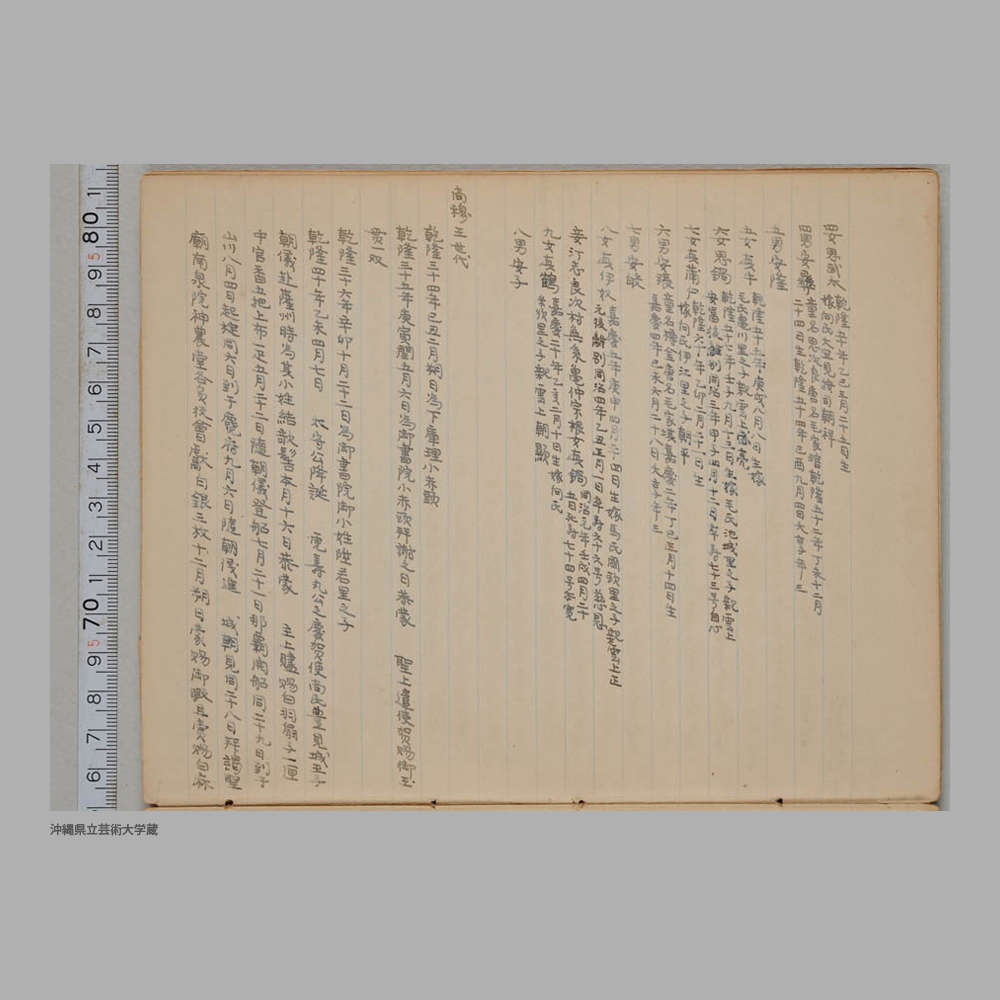 四女思武太 乾隆五十年乙巳三月二十五日生
嫁向氏大宜見按司朝祥
四男安 童名思次良唐名毛 乾隆五十二年丁未十二月
二十四日生乾隆五十四年己酉九月四日夭享年三
五男安隆
五女真牛 乾隆五十五年庚戌八月八日生嫁
毛氏 川里之子親雲上盛亮
六女思鍋 乾隆五十七年壬子九月 日生嫁毛氏池城里之子親雲上
安 後 別同治三年甲子四月十二日卒寿七十三号自心
七女真蒲戸 乾隆六十年乙卯二月二十一日生
嫁向氏伊江里之子朝平
六男安張 童名樽金唐名毛家 嘉慶二年丁巳正月十四日生
嘉慶四年己未六月十八日夭享年三
七男安敏
八女真伊奴 嘉慶五年庚申四月二十四日生嫁馬氏 里之子親雲上正
元後離別同治四年乙丑正月一日卒寿六十六号慈恩
妾汀志良次村無系亀仲宗根女真鍋 同治元年壬戌四月二十
五日死寿七十四号本寛
九女真鶴 嘉慶二十年乙亥二月十四日生嫁向氏
里之子親雲上朝
八男安子
尚穆王世代
乾隆三十四年己丑二月朔日為下庫理小赤頭
乾隆三十五年庚寅閏五月六日為御書院小赤頭拝謝之日恭蒙 聖上遣使賀賜御玉
貫一双
乾隆三十六年辛卯十月二十二日為御書院御小姓陞若里之子
乾隆四十年乙未四月七日 太守公降誕 虎寿丸公之慶賀使尚氏豊見城王子
朝儀赴薩州時為其小姓結欹髻本月十六日恭蒙 主上 賜白羽扇子一匣
中官香五把上布一疋五月二十二日随朝儀登船七月二十一日那覇開船同二十九日到于
山川八月四日起旋同六日到于麑府九月六日随朝儀進 城朝見同二十八日拝謁聖
廟南泉院神農堂各 後曽献白銀三枚十二月朔日蒙賜御暇且賞賜白糸
沖縄県立芸術大学蔵